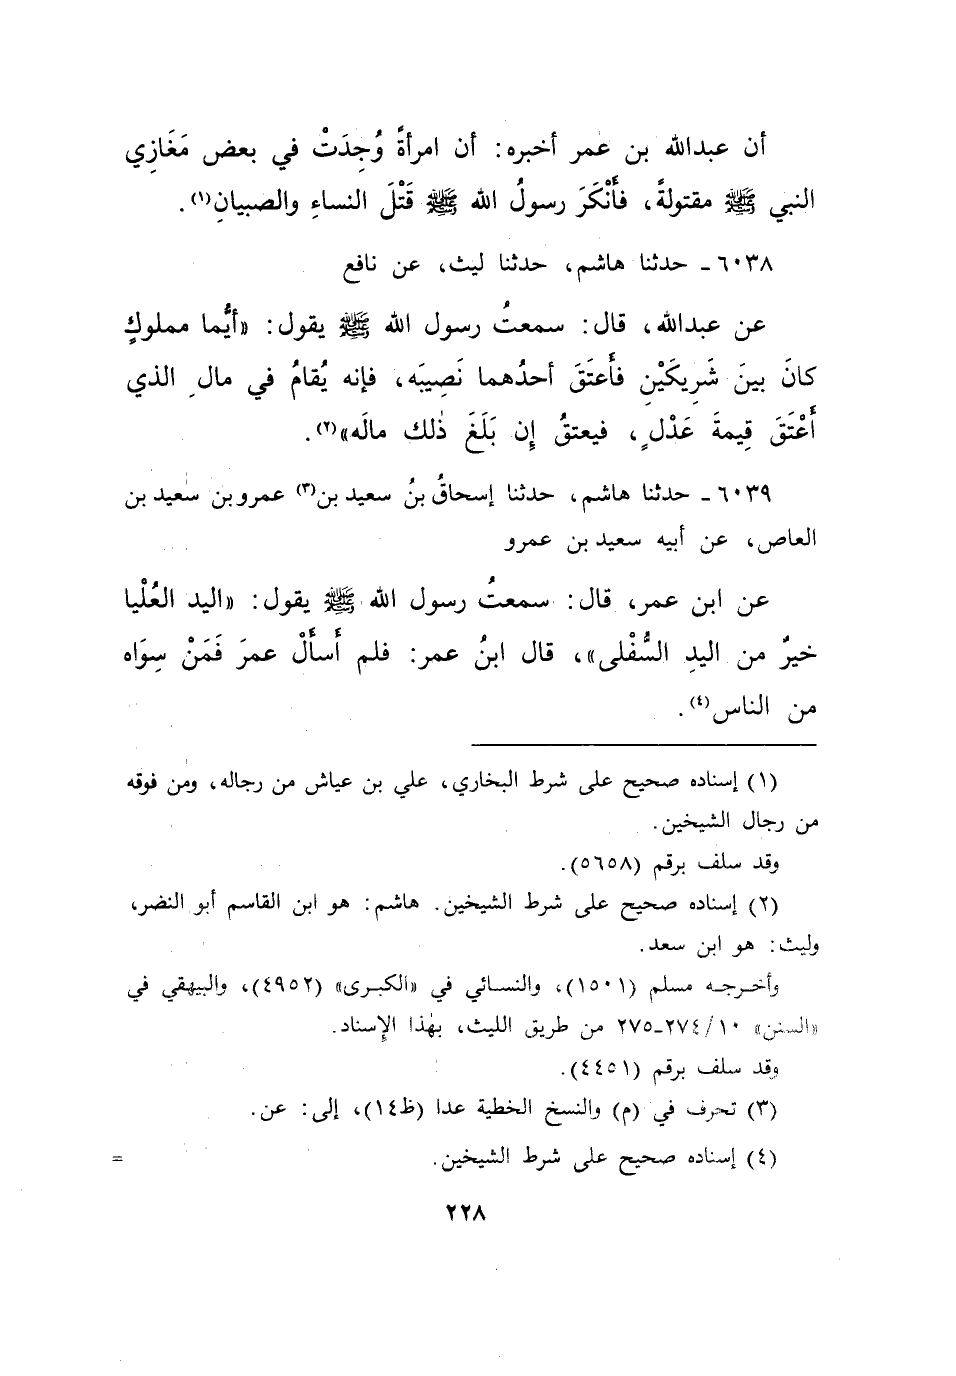 أن عبدالله بن عمر أخبره: أن امرأةً وُجِدَتْ في بعض مَغَازِي
النبي ﷺ مقتولةً، فأَنْكَرَ رسولُ الله ﷺ قَتْلَ النساءِ والصبيانِ(١).
٦٠٣٨ـ حدثنا هاشم، حدثنا ليث، عن نافع
عن عبدالله، قال: سمعتُ رسول الله ﷺ يقول: «أَيُّما مملوكٍ
كانَ بينَ شَرِيكَيْنِ فأَعتَقَ أحدُهما نَصِيبَه، فإنه يُقامُ في مالِ الذي
أَعْتَقَ قِيمةَ عَدْلٍ، فيعتقُ إِن بَلَغَ ذٰلك مالَه»(٢).
٦٠٣٩ـ حدثنا هاشم، حدثنا إسحاقُ بنُ سعيد بن(٣) عمرو بن سعيد بن
العاص، عن أبيه سعيد بن عمرو
عن ابن عمر، قال: سمعتُ رسول الله ﷺ يقول: «اليد العُلْيا
خيرٌ من اليدِ السُّفْلى»، قال ابنُ عمر: فلم أَسأَلْ عمرَ فَمَنْ سِوَاه
من الناس(٤).
(١) إسناده صحيح على شرط البخاري، علي بن عياش من رجاله، ومن فوقه
من رجال الشيخين.
وقد سلف برقم (٥٦٥٨).
(٢) إسناده صحيح على شرط الشيخين. هاشم: هو ابن القاسم أبو النضر،
وليث: هو ابن سعد.
وأخرجه مسلم (١٥٠١)، والنسائي في «الكبرى» (٤٩٥٢)، والبيهقي في
«السنن» ١٠/٢٧٤ـ٢٧٥ من طريق الليث، بهٰذا الإِسناد.
وقد سلف برقم (٤٤٥١).
(٣) تحرف في (م) والنسخ الخطية عدا (ظ١٤)، إلى: عن.
(٤) إسناده صحيح على شرط الشيخين. =
٢٢٨